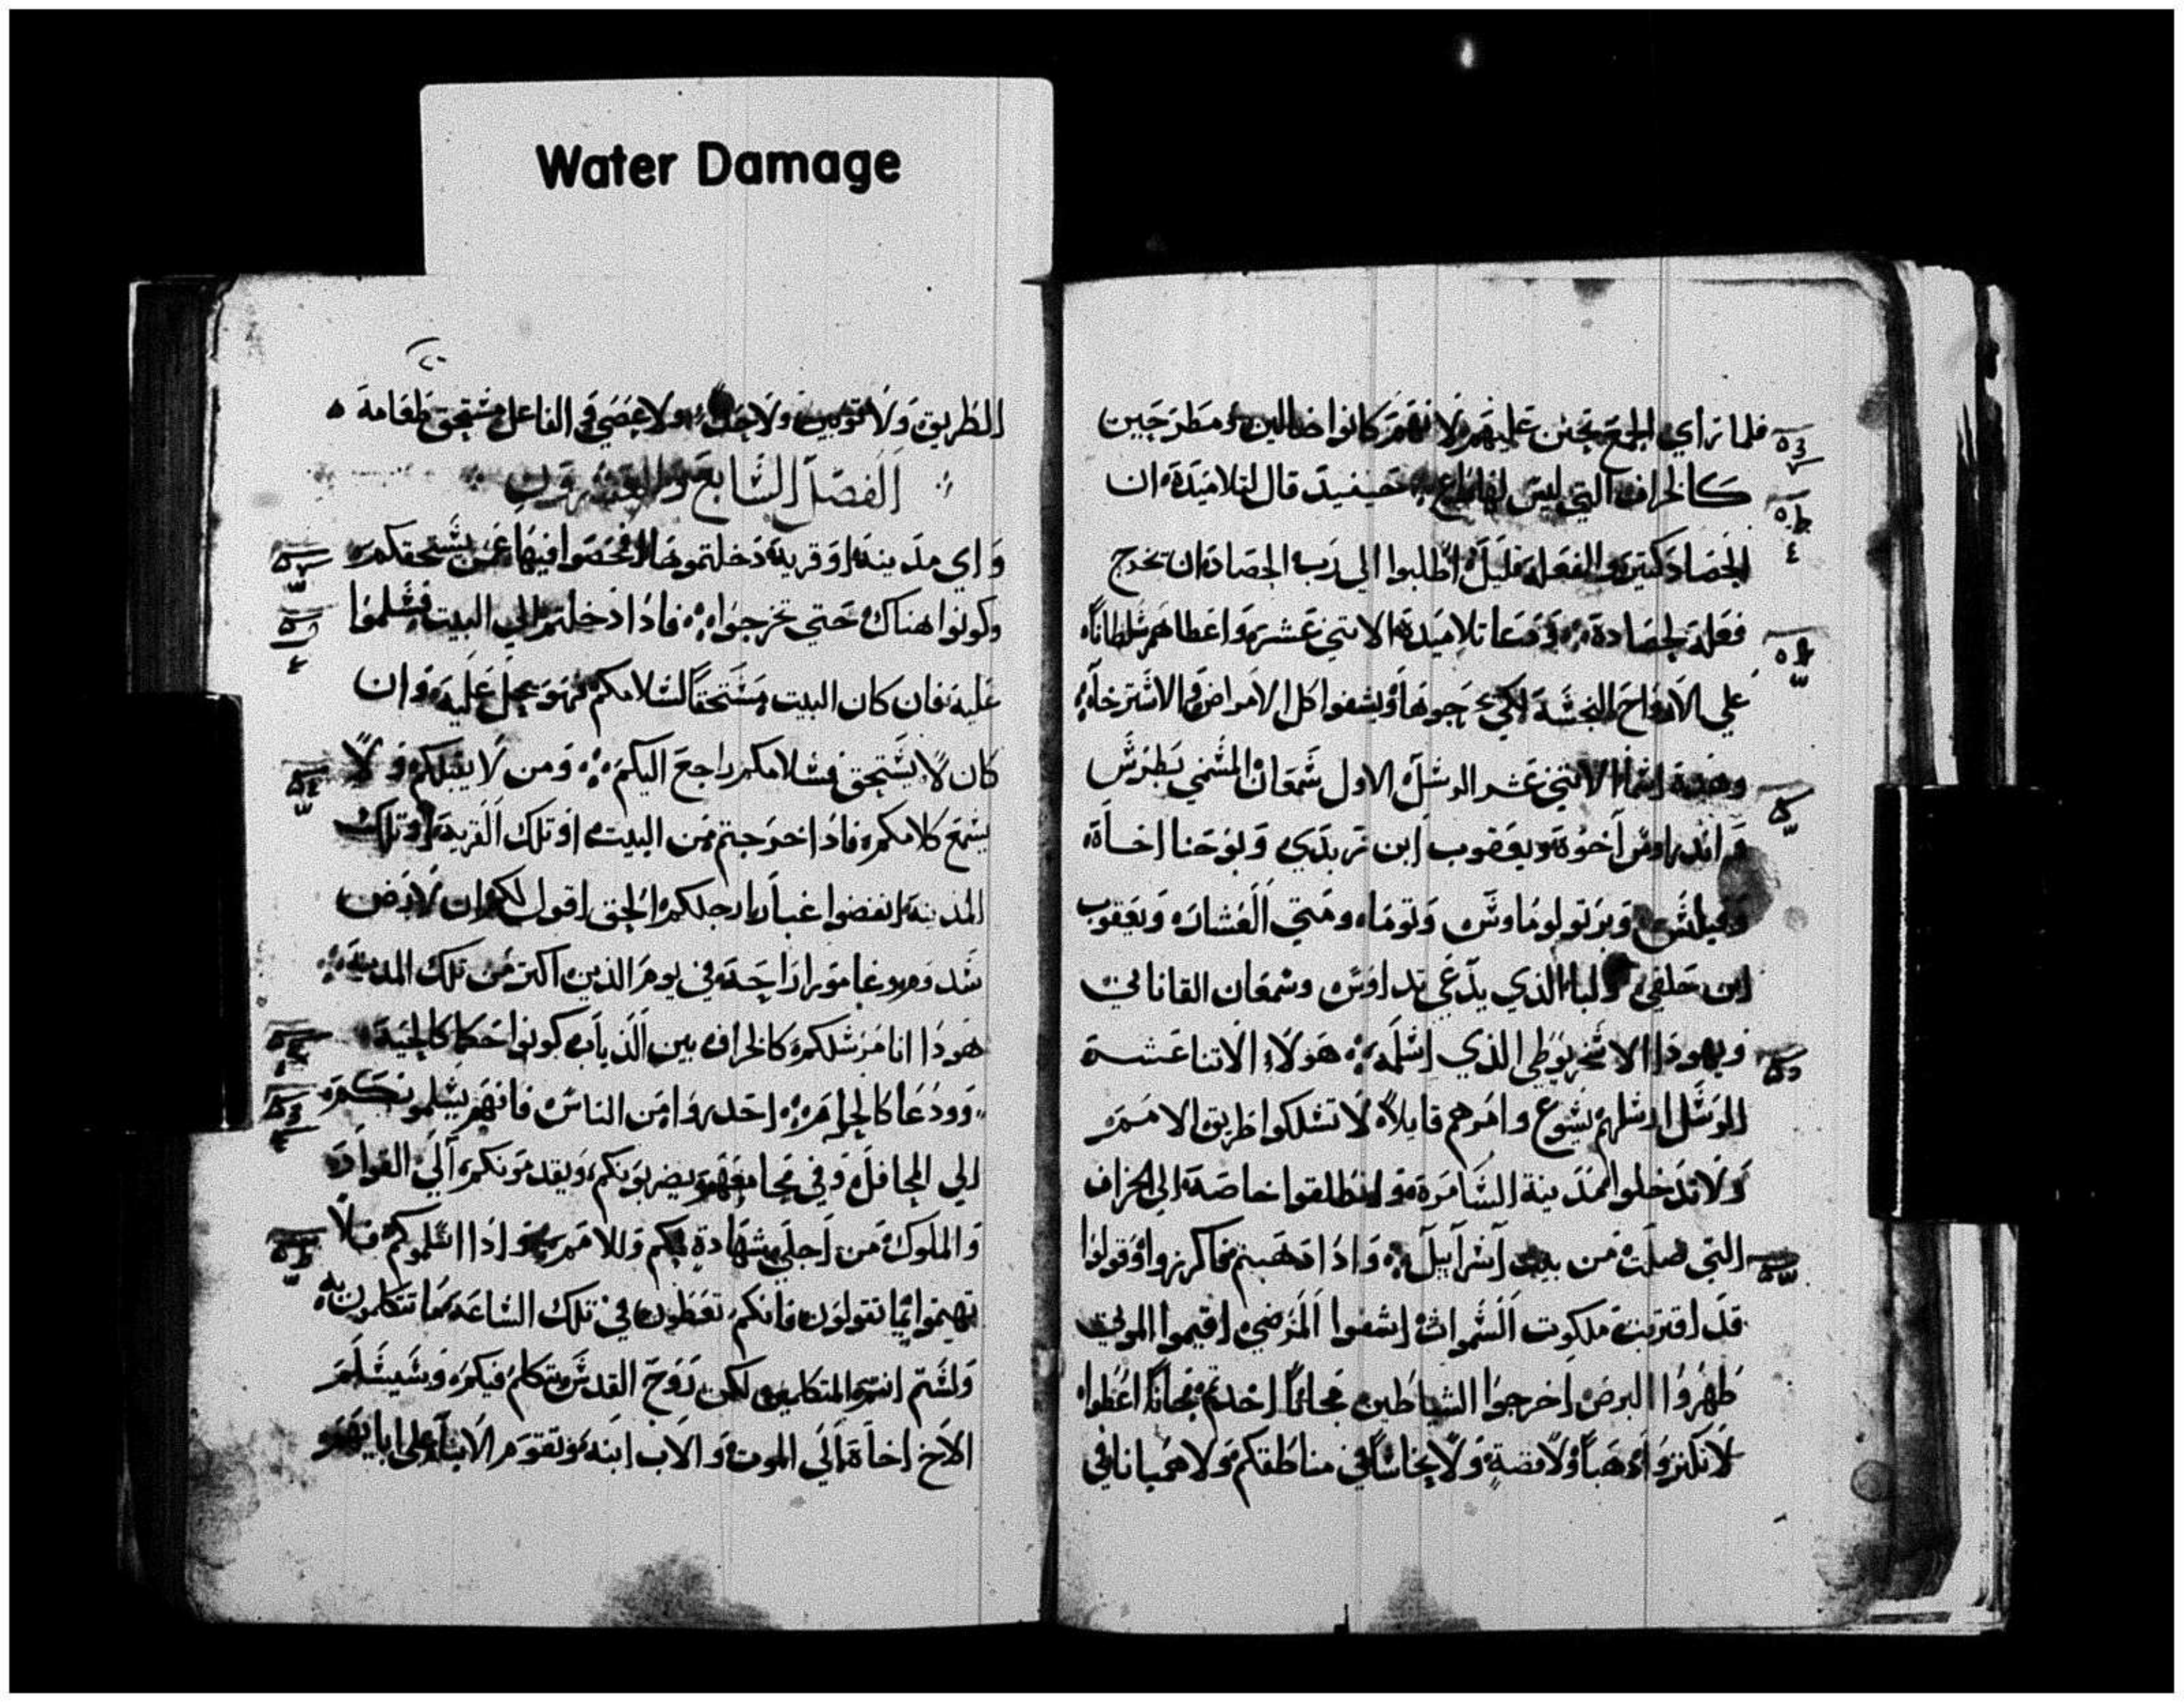 Water Damage
فلما راي الجمع تحنن عليهم لانهم كانوا ضالين ومطرحين
كالخراف التي ليس لها راع حينيد قال لتلاميده ان
الحصاد كتير والفعله قليل اطلبوا الي رب الحصاد ان يخرج
فعله لحصاده ودعا تلاميده الاتني عشر واعطاهم سلطاناً
علي الارواح النجسه لكي يخرجوها ويشفوا كل الامراض والاسترخاء
وهده اسماء الاتني عشر الرسل الاول سمعان المسمي بطرس
واندراوس اخوه ويعقوب ابن زبدي ويوحنا اخاه
وفيلبس وبرتولوماوس وتوما ومتي العشار ويعقوب
ابن حلفي ولبا الذي يدعي تداوس وسمعان القاناني
ويهودا الاسخريوطي الذي اسلمه هولاء الاتنا عشر
الرسل ارسلهم يسوع وامرهم قايلاً لا تسلكوا طريق الامم
ولا تدخلوا مدينة السامره وانطلقوا خاصة الي الخراف
التي ضلت من بيت اسراييل واذا دهبتم فاكرزوا وقولوا
قد اقتربت ملكوت السموات اشفوا المرضي اقيموا الموتي
طهروا البرص اخرجوا الشياطين مجاناً اخدتم مجاناً اعطوا
لا تكنزوا دهباً ولا فضةٍ ولا نحاساً في مناطقكم ولا هميانا في
الطريق ولا توبين ولا حدا ولا عصي فالفاعل مستحق طعامه
الفصل السابع والعشرون
واي مدينه او قريه دخلتموها افحصوا فيها عن يستحقكم
وكونوا هناك حتي تخرجوا فادا دخلتم الي البيت فسلموا
عليه فان كان البيت مستحقاً لسلامكم فهو يحل عليه وان
كان لا يستحق فسلامكم راجع اليكم ومن لا يقبلكم ولا
يسمع كلامكم فادا خرجتم من البيت او تلك القريه او تلك
المدينه انفضوا غبار ارجلكم الحق اقول لكم ان لارض
سدوم وغامورا راحه في يوم الدين اكتر من تلك المدينه
هودا انا مرسلكم كالخراف بين الدياب كونوا حكما كالحيه
وودعا كالحمام احدروا من الناس فانهم يسلمونكم
الي المحافل وفي مجامعهم يضربونكم ويقدمونكم الي القواد
والملوك من اجلي شهادة لهم وللامم واذا اسلموكم فلا
تهتموا بما تقولون فانكم تعطون في تلك الساعه ما تتكلمون به
ولستم انتم المتكلمين لكن روح القدس يتكلم فيكم وسيسلم
الاخ اخاه الي الموت والاب ابنه وتقوم الابناء علي ابايهم